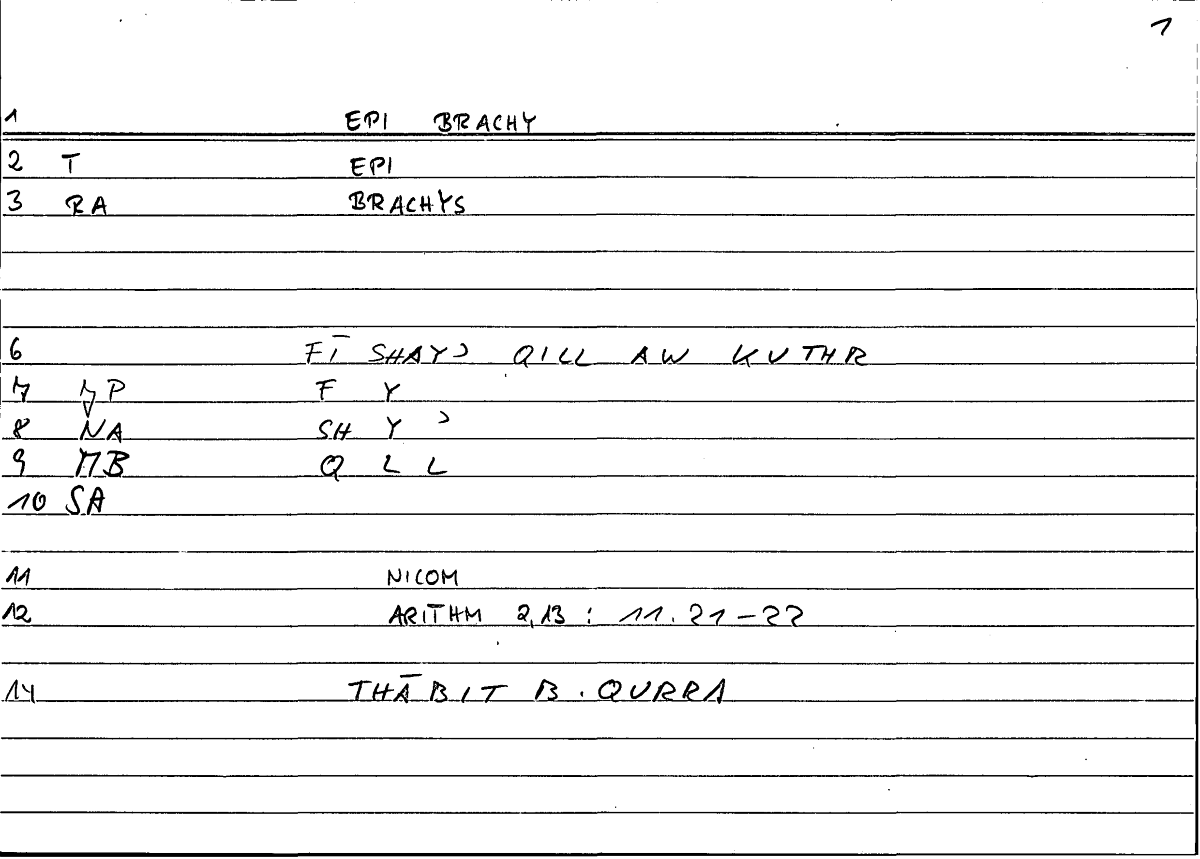 1
1 EPI BRACHY
2 T EPI
3 RA BRACHYS
6 FĪ SHAYʾ QILL AW KUTHR
7 MP F Y
8 NA SH Y ʾ
9 MB Q L L
10 SA
11 NICOM
12 ARITHM 2,13 : 11.21-22
14 THĀBIT B. QURRA